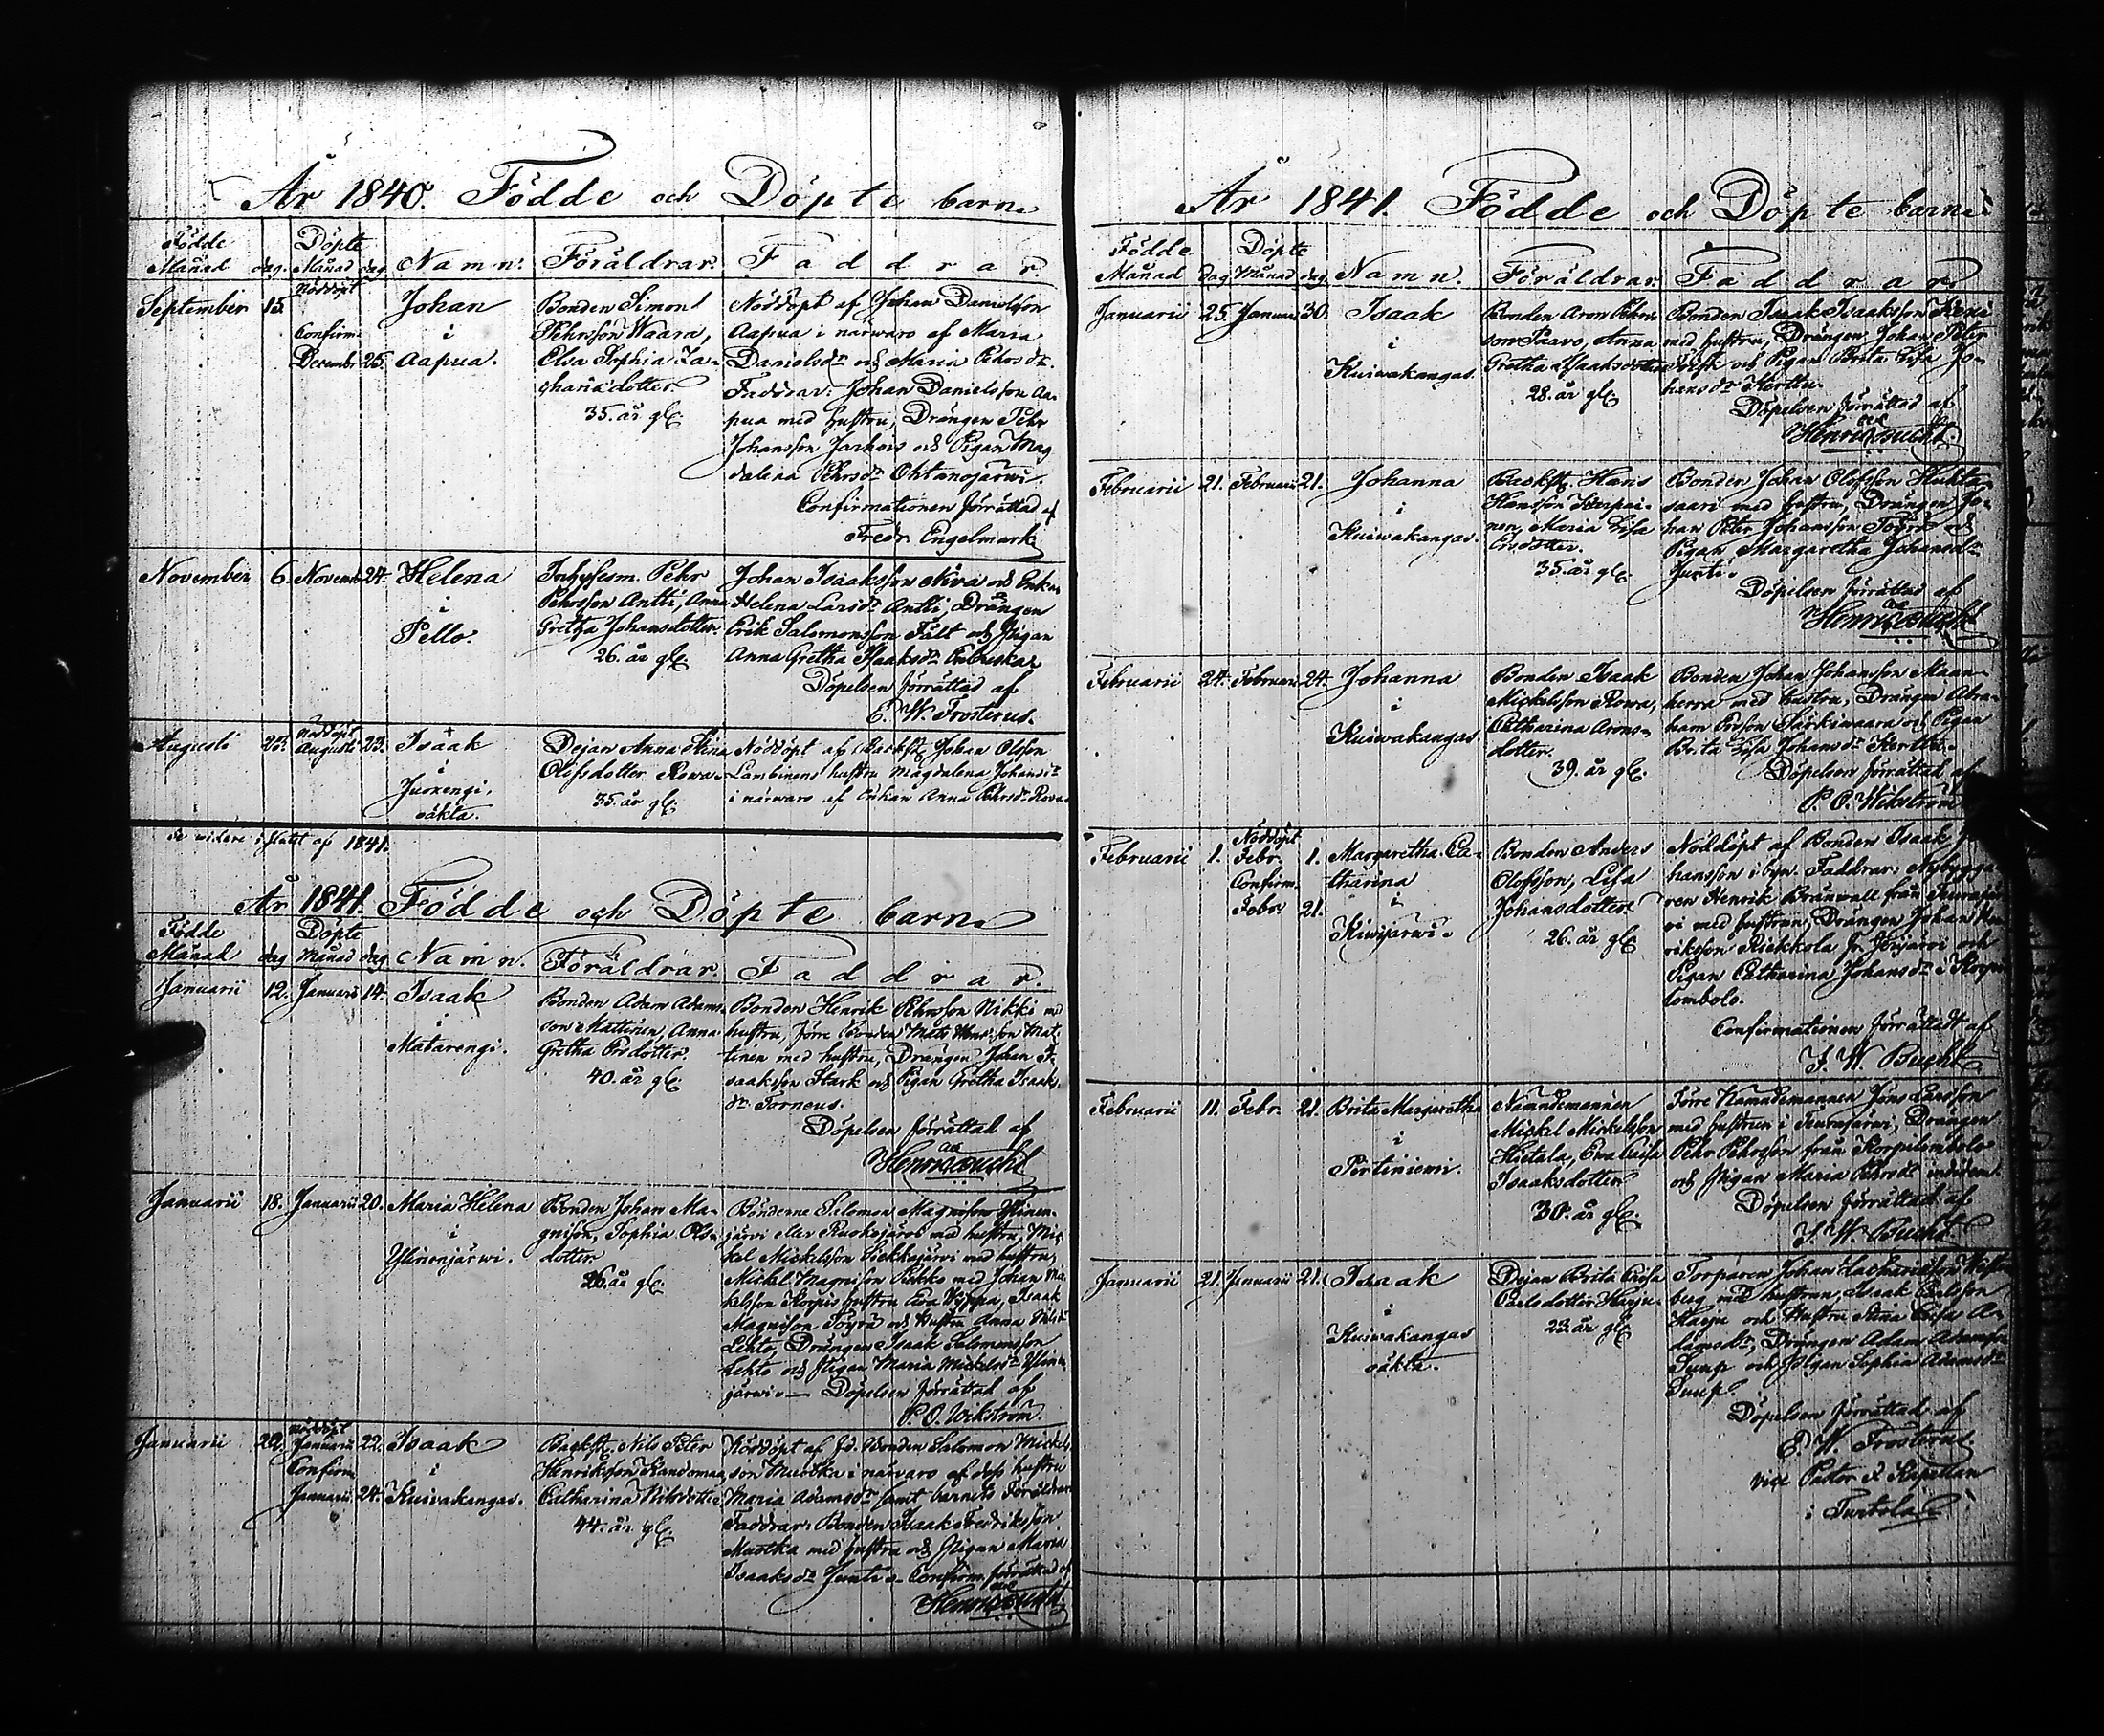 År 1840. Födde och Döpte barn.
Födde Månad dag. Döpte Månad dag Namn. Föräldrar. Faddrar.
September 15. Nöddöpt Confirm. Decembr 25.
Johan
i
Aapua.
Bonden Simon
Pehrsson Waara,
Elsa Sophia Za-
charia dotter
35. år gl.
Nöddöpt af Johan Danielsson
Aapua i närwaro af Maria
Danielsdr och Maria Pedersdr.
Faddrar: Johan Danielsson Aa-
pua med hustru, Drängen Pehr
Johansson och Pigan Mag
dalena Pehrsdr Ohtanajärwi.
Confirmationen förrättad af
Fredr. Engelmark
November 6. Novemb 24.
Helena
i
Pello.
Pehr
Pehrsson Antti, Anna
Gretha Johansdotter.
26. år gl.
Johan Isaaksson Niva och Enkan
Helena Larsdr Antti, Drängen
Erik Salomonsson Fält och Pigan
Anna Gretha Isaaksdr
Döpelsen förrättad af
E. W. Frosterus.
Augusti 23. Nöddöpt Augusti 23.
Isaak
i
Juoxengi,
oäkta.
Dejan Anna Stina
Olofsdotter Rowa
35. år gl.
Nöddöpt af Johan Olsson
Lambinens hustru Magdalena Johansdr
i närwaro af Enkan Anna Pehrsdr Rowa
Se widare i slutet af 1841.
År 1841. Födde och Döpte barn.
Födde Månad dag Döpte Månad dag Namn. Föräldrar. Faddrar.
Januarii 12. Januarii 14.
Isaak
i
Matarengi.
Bonden Adam Adams-
son Mattinen, Anna
Gretha Ersdotter.
40. år gl.
Bonden Henrik Pehrsson Nikki med
hustru, förre Bonden Mats Matsson Mat-
tinen med hustru, Drängen Johan I-
saaksson Stark och Pigan Gretha Isaaks
dr Torneus.
Döpelsen förrättad af
Henric Bucht
Januarii 18. Januarii 20.
Maria Helena
i
Ylinenjärwi.
Bonden Johan Ma-
gnisson, Sophia Ols-
dotter
26. år gl.
Bönderne Salomon Magnisson Ylinen-
järvi eller Ruokojärvi med hustru, Mic-
kel Mickelsson Liekkajärvi med hustru,
Mickel Magnisson Pekko med Johan Mi-
kelsson Korpis hustru Eva Wippa, Isaak
Magnison Töyrä och hustru Anna
Lehto, Drängen Isaak Salomonsson
Lehto och Pigan Maria Mickelsdr Ylinen
järwi. — Döpelsen förrättad af
P. O. Wikström.
Januarii 22. Nöddöpt Januarii 22. Confirm. Januarii 24.
Isaak
i
Kuivakangas.
Nils Peter
Henriksson Kandomaa,
Catharina Nilsdotter
44. år gl.
Nöddöpt af Bonden Salomon Mickel
son Muotka i närvaro af dess hustru
Maria Adamsdr samt barnets Föräldrar
Faddrar: Bonden Isaak Fredriksson
Muotka med hustru och Pigan Maria
Isaaksdr Junti. Confirm. förrättad af
Henric Bucht.
År 1841. Födde och Döpte barn.
Födde Månad dag Döpte Månad dag Namn. Föräldrar. Faddrar.
Januarii 25. Januari 30.
Isaak
i
Kuiwakangas.
Bonden Aron Pehrs
son Paavo, Anna
Gretha Isaaksdotter
28. år gl.
Bonden Isaak Isaaksson
med hustru, Drängen Johan Peter
Frisk och Pigan Brita Lisa Jo-
hansdr Hertta.
Döpelsen förrättad af
Henric Bucht.
Februarii 21. Februarii 21.
Johanna
i
Kuiwakangas.
Hans
Hansson Karpai-
nen, Maria Lisa
Ersdotter.
35. år gl.
Bonden Johan Olofsson Huhta-
saari med hustru, Drängen Jo-
han Peter Johansson Töyrä och
Pigan Margaretha Johansdr
Junti.
Döpelsen förrättad af
Henric Bucht
Februarii 24. Februari 24.
Johanna
i
Kuiwakangas.
Bonden Isaak
Mickelsson Rowa,
Catharina Arons-
dotter.
39. år gl.
Bonden Johan Johansson Maan-
herra med hustru, Drängen Abra-
ham Ersson Särkiwaara och Pigan
Brita Lisa Johansdr Hertta.
Döpelsen förrättad af
P. O. Wikström
Februarii 1. Nöddöpt Febr. 1. Confirm. Febr. 21.
Margaretha Ca-
tharina
i
Kiwijärwi.
Bonden Anders
Olofsson, Lisa
Johansdotter.
26. år gl.
Nöddöpt af Bonden Isaak Jo
hansson i byn. Faddrar: Nybygga
ren Henrik Bränwall från
vi med hustrun, Drängen Johan Hen
riksson Riekkola fr. och
Pigan Catharina Johansdr i Korpi
lombolo.
Confirmationen förrättadt af
J. W. Bucht
Februarii 11. Febr. 21.
Brita Margaretha
i
Pirtiniemi.
Nämndemannen
Mickel Mickelsson
Hietala, Eva Caisa
Isaaksdotter
30. år gl.
Förre Nämndemannen Jöns Larsson
med hustrun i Teurajärvi, Drängen
Pehr Pehrsson från Korpilombolo
och Pigan Maria Pehrsdr
Döpelsen förrättad af
J. W. Bucht.
Januarii 21. Januarii 21.
Isaak
i
Kuiwakangas
oäkta.
Dejan Brita Caisa
Carlsdotter Harju.
23. år gl.
Torparen Johan Zachariasson
berg med hustrun, Isaak Carlsson
Harju och Hustru Stina Caisa A-
damsdr, Drängen Adam Adamsson
Sump och Pigan Sophia Adamsdr
Sump.
Döpelsen förrättad af
E. W. Frosterus
vice Pastor & Kapellan
i Turtola